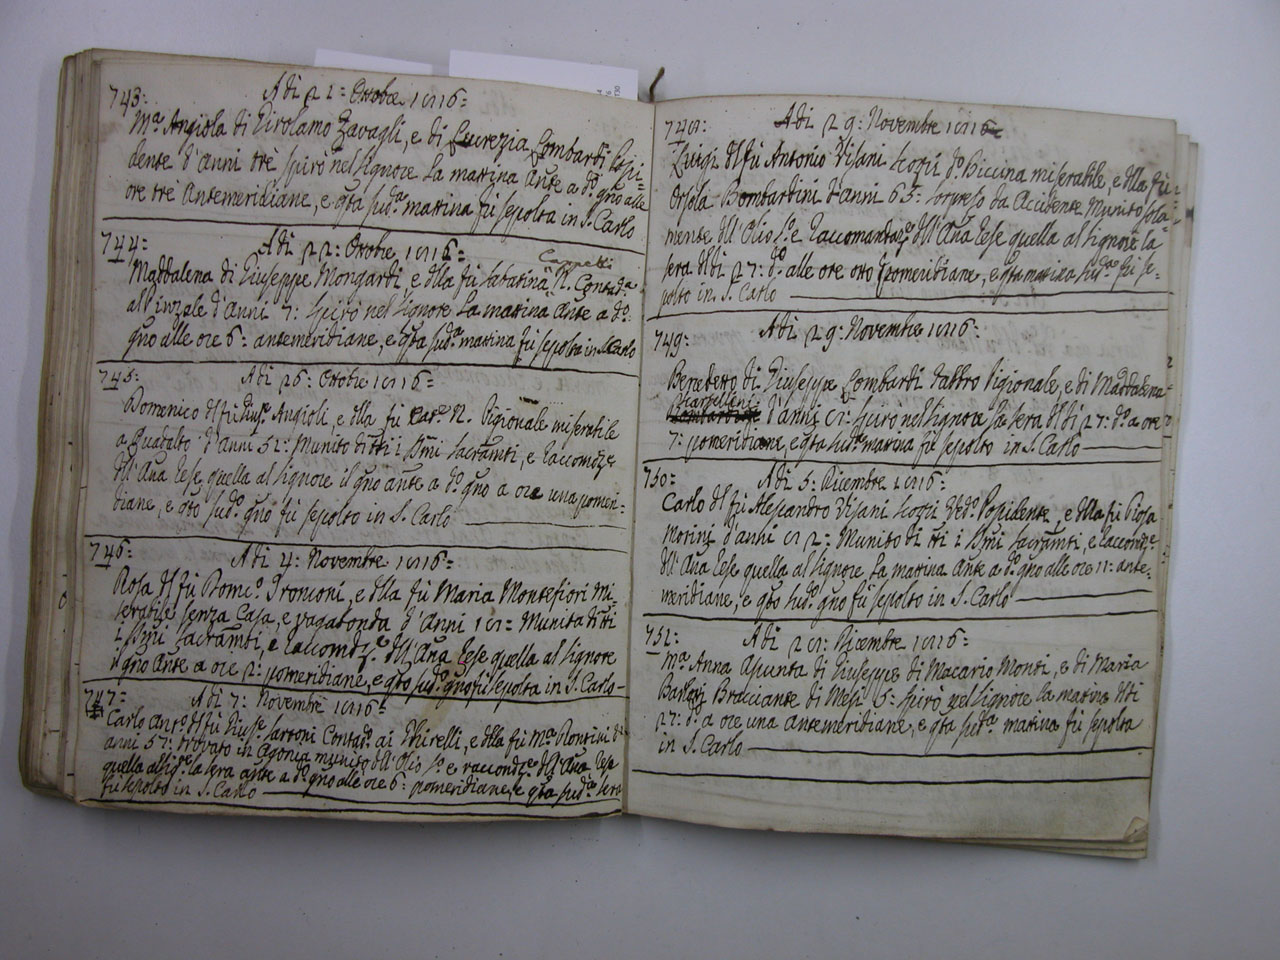 743:
A di 21: Ottobre 1776=
Mª Angiola di Girolamo Zavagli, e di Lucrezia Lombardi
dente d'Anni tré spirò nel Signore la mattina Ante a dº. gño alle
ore tré Antemeridiane, e qta sudª. mattina fù sepolta in S. Carlo
744:
A di 22: Ottobre 1776=
Cappelli
Maddalena di Giuseppe Mongardi, e dlla fù Sabatina N.
d'Anni 7: spirò nel Signore la mattina Ante a dº.
gño alle ore 6: antemeridiane, e qta sudª. mattina fù sepolta in S. Carlo
745:
A di 26: Ottobre 1776=
Domenico dl fù Giuse. Angioli, e dlla fù Catª. N. Pigionale miserabile
a d'anni 52: Munito di tti i Smi Sacramti, e raccomdze
dll'Aña rese quella al Signore il gño ante a dº. gño a ore una pomeri=
diane, e qto sudº. gño fù sepolto in S. Carlo
746:
A di 4: Novembre 1776=
Rosa dl fù Domcº. Tronconi, e dlla fù Maria Montefiori Mi=
serabile senza Casa, e vagabonda d'Anni 17= Munita di tti
i Smi Sacramti, e raccomdze. dll'Aña rese quella al Signore
il gño Ante a ore 2: pomeridiane, e qto sudº. gño fù sepolta in S. Carlo
747:
A di 7: Novembre 1776=
Carlo Antº. dl fù Giuse. Sartoni Contadº. ai Ghirelli, e dlla fù Mª. Rontini di
anni 57: trovato in agonia munito dll'Olio Sº. e raccomdze dll'Aña rese
quella al Sigre. la sera ante a dº. gño alle ore 6: pomeridiane, e qta sudª. sera
fù sepolto in S. Carlo
748:
A di 29: Novembre 1776=
Luigi dl fù Antonio Visani Loqui dº. Biccina miserabile, e dlla fù
Orsola Bombardini d'anni 63= sorpreso da Accidente Munito sola=
mente dll'Olio Sº. e raccomandaze dll'Aña rese quella al Signore la
sera dl di 27: dº. alle ore otto pomeridiane, e qta mattina sudª. fù se=
polto in S. Carlo
749:
A di 29: Novembre 1776:
Benedetto di Giuseppe Lombardi Fabbro Pigionale, e di Maddalena
Scarpellini
d'anni 7: spirò nel Signore la sera dl di 27: dº. a ore
7: pomeridiane, e qta sudª. mattina fù sepolto in S. Carlo
750:
A di 5: Dicembre 1776=
Carlo dl fù Alessandro Visani Loqui Vedº. Possidente, e dlla fù Rosa
Morini d'anni 72: Munito di tti i Smi Sacramti, e raccomdze.
dll'Aña rese quella al Signore la mattina Ante a dº. gño alle ore 11: ante=
meridiane, e qto sudº. gño fù sepolto in S. Carlo
751:
A di 27: Dicembre 1776=
Mª Anna Assunta di Giuseppe di Macario Monti, e di Maria
Bracciante di Mesi 6: spirò nel Signore la mattina dl di
27: dº. a ore una antemeridiane, e qta sudª. mattina fù sepolta
in S. Carlo